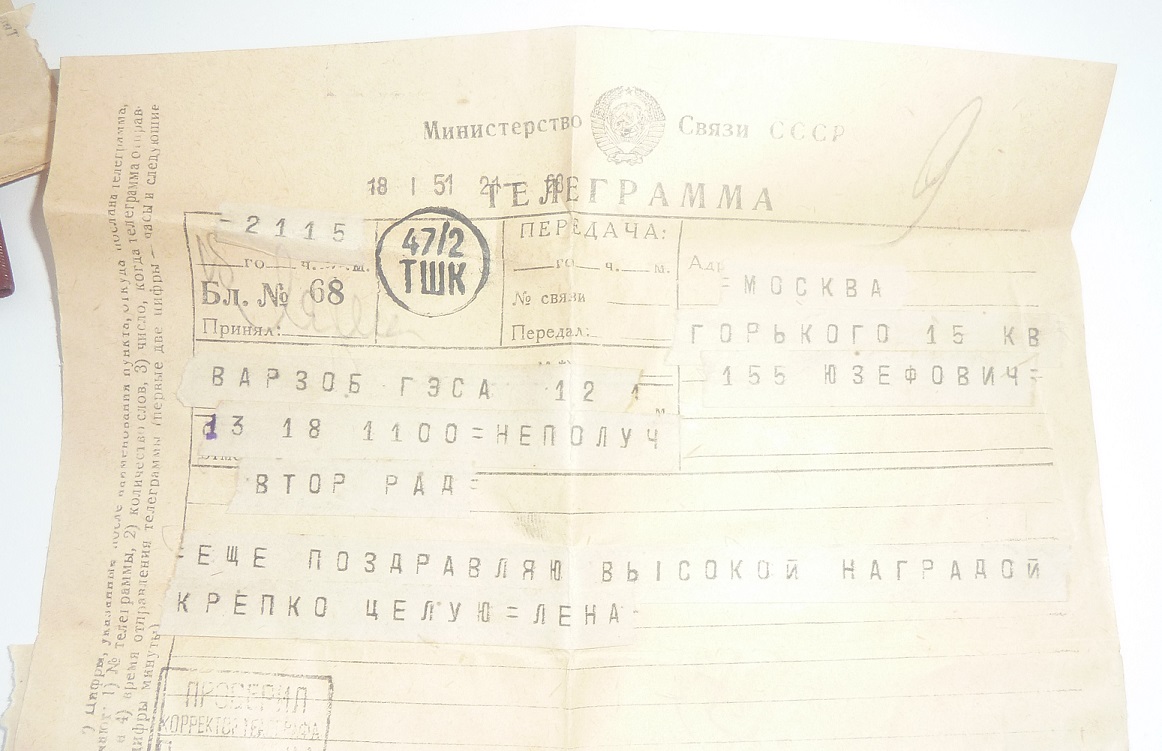 Министерство Связи СССР
18 I 51 21
ТЕЛЕГРАММА
-2115
го ч. м.
47/2
ТШК
ПЕРЕДАЧА:
го ч. м.
Бл. № 68
№ связи
Принял:
Передал:
=МОСКВА
ГОРЬКОГО 15 КВ
155 ЮЗЕФОВИЧ=
ВАРЗОБ ГЭСА 12 1
13 18 1100=НЕПОЛУЧ
ВТОР РАД=
=ЕЩЕ ПОЗДРАВЛЯЮ ВЫСОКОЙ НАГРАДОЙ
КРЕПКО ЦЕЛУЮ=ЛЕНА-
ПРОВЕРИЛ
КОРРЕКТОР ТЕЛЕГРАФА
Цифры, указанные после наименования пункта, откуда послана телеграмма,
1) № телеграммы, 2) количество слов, 3) число, когда телеграмма отправ-
и 4) время отправления телеграммы (первые две цифры — часы и следующие
цифры минуты)